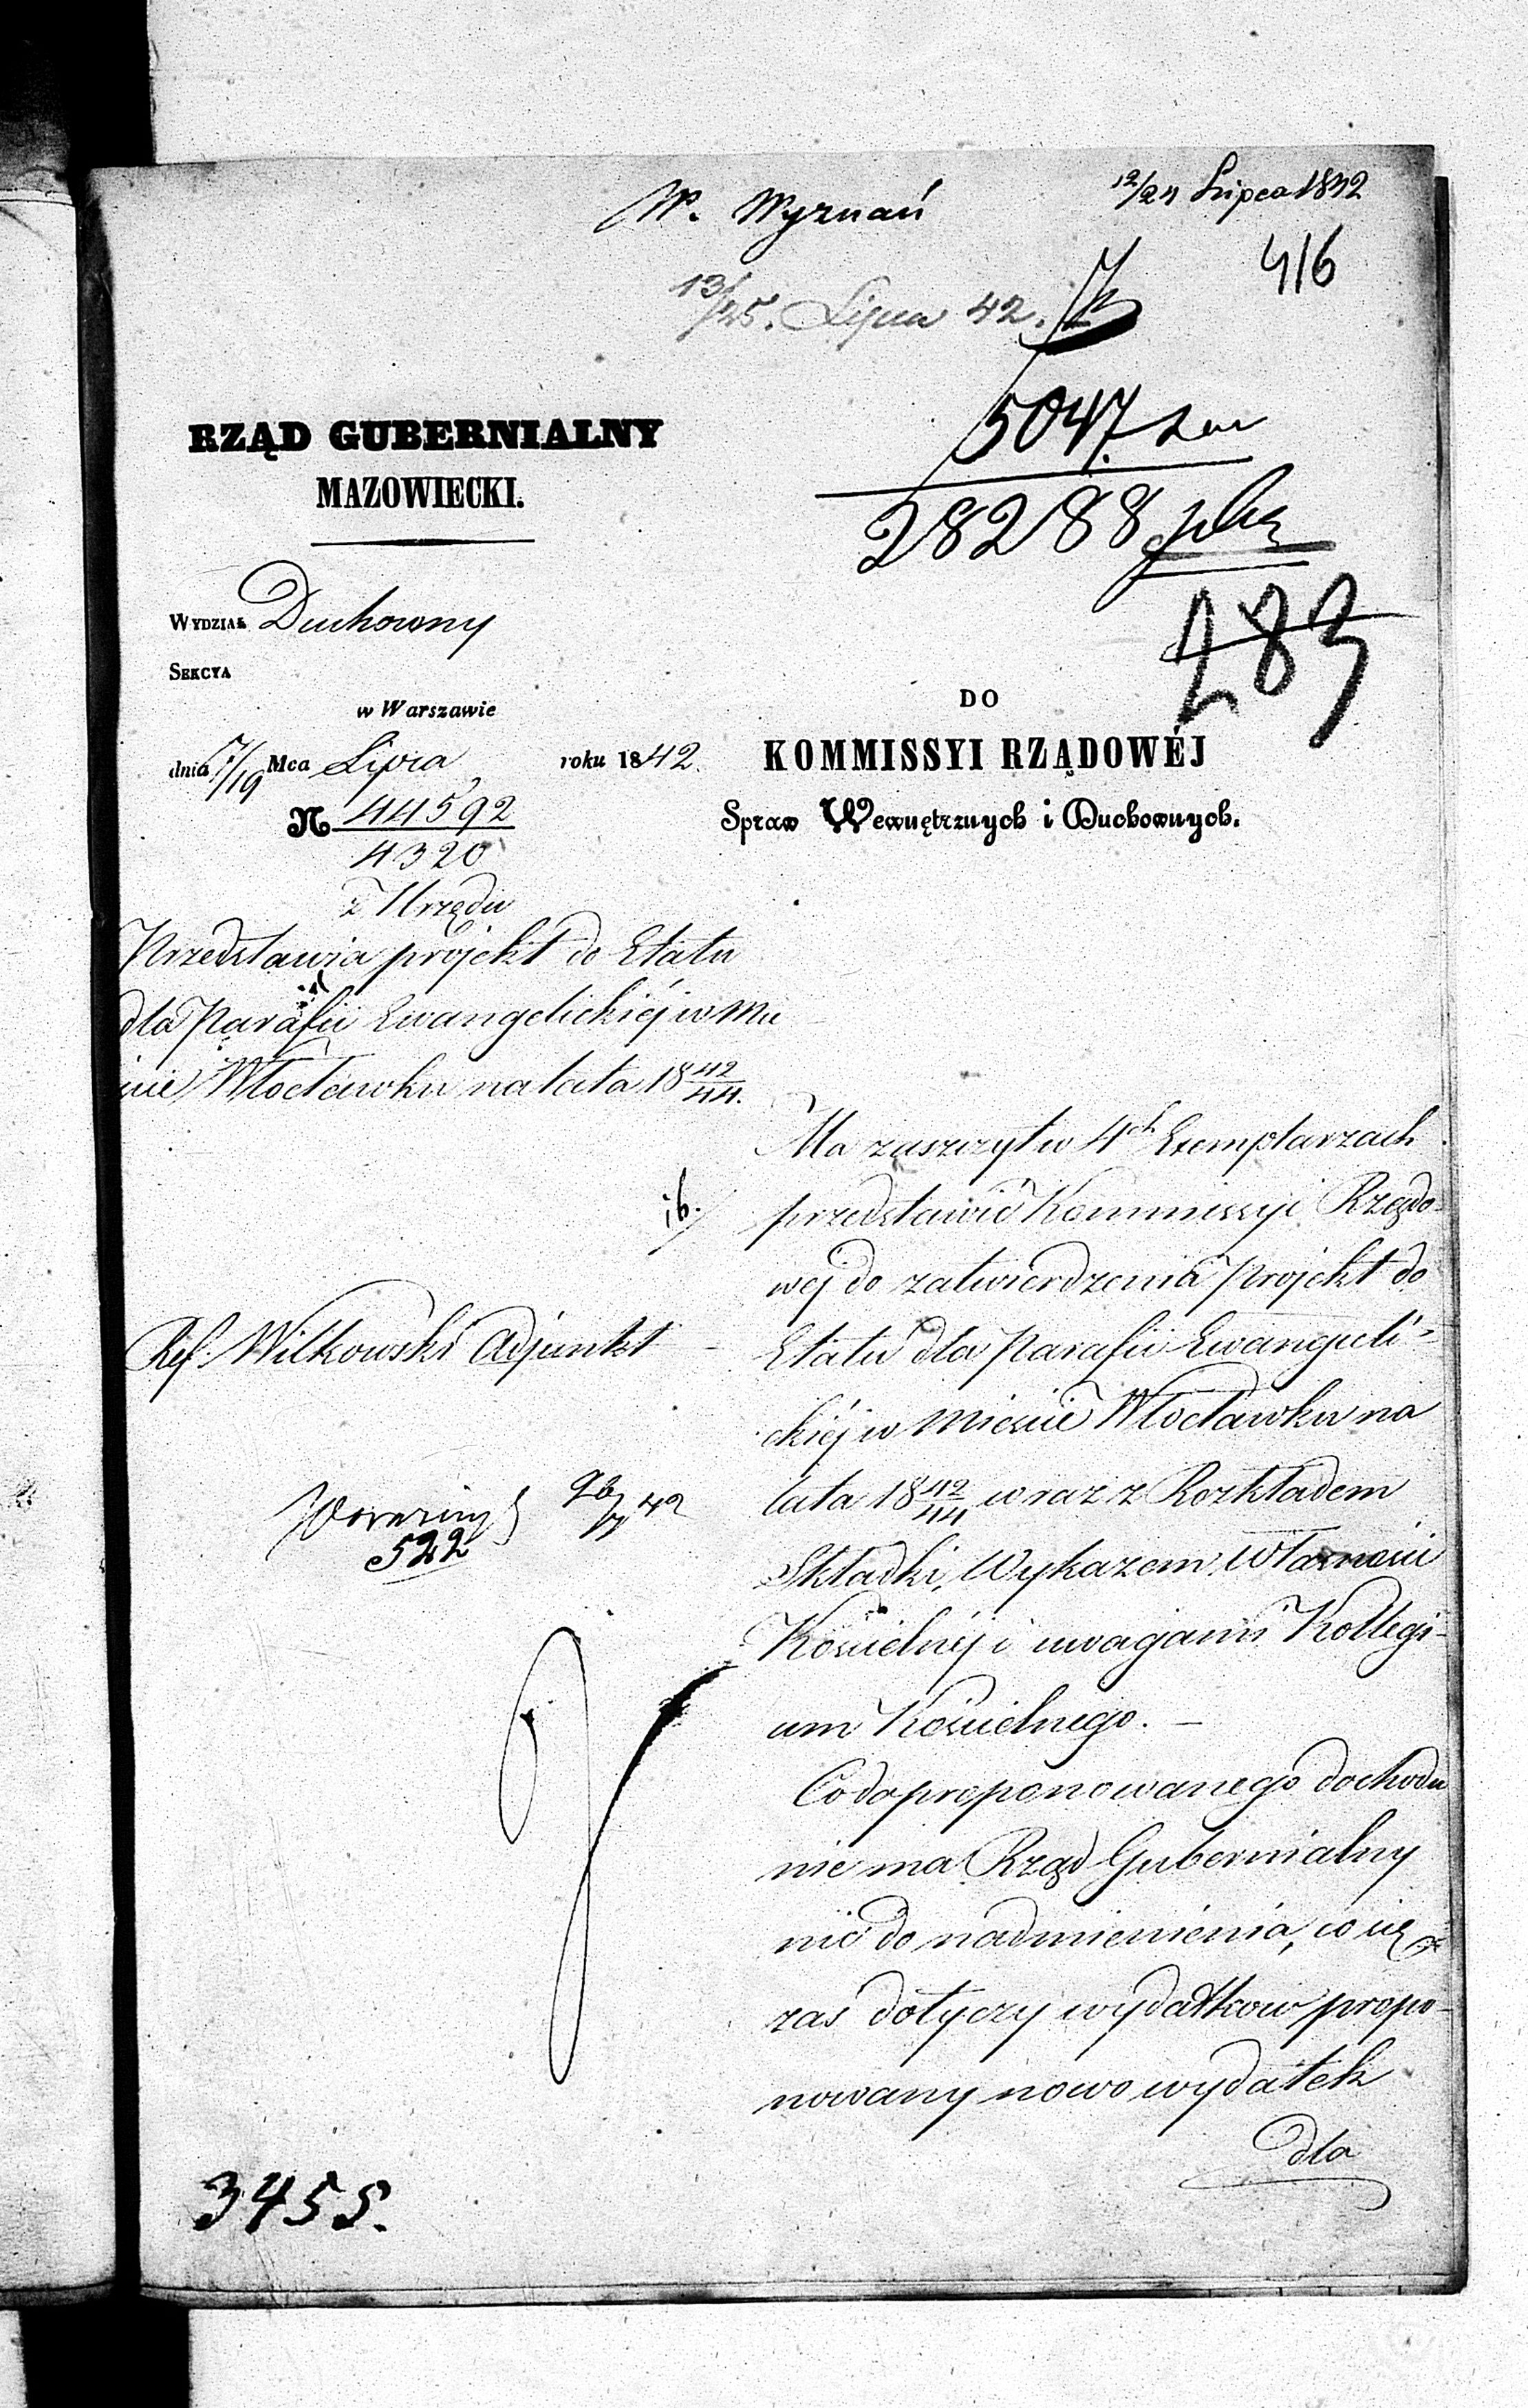 W. Wyznań
12/24 Lipca 1842
416
13/25. Lipca 42.
5047
28288
283
RZĄD GUBERNIALNY
MAZOWIECKI.
WYDZIAŁ Duchowny
SEKCYA
w Warszawie
dnia 7/19 Mca Lipca roku 1842.
N 44592
4320
z Urzędu
Przedstawia projekt do Etatu
dla Parafii Ewangelickiéj w Mie
ście Włocławku na lata 18 42/44.
DO
KOMMISSYI RZĄDOWÉJ
Spraw Wewnętrznych i Duchownych.
Ref. Witkowski Adjunkt
522
3455.
Ma zaszczyt w 4ch Exemplarzach
przedstawić Kommissyi Rządo-
wej do zatwierdzenia projekt do
Etatu dla Parafii Ewangeli-
ckiéj w Mieście Włocławku na
lata 18 42/44 wraz z Rozkładem
Składki, Wykazem Własności
Kościelnéj i uwagami Kollegi-
um Kościelnego. –
Co do proponowanego dochodu
nie ma Rząd Gubernialny
nic do nadmienienia, co się
zaś dotyczy wydatkow propo-
nowany nowo wydatek
dla